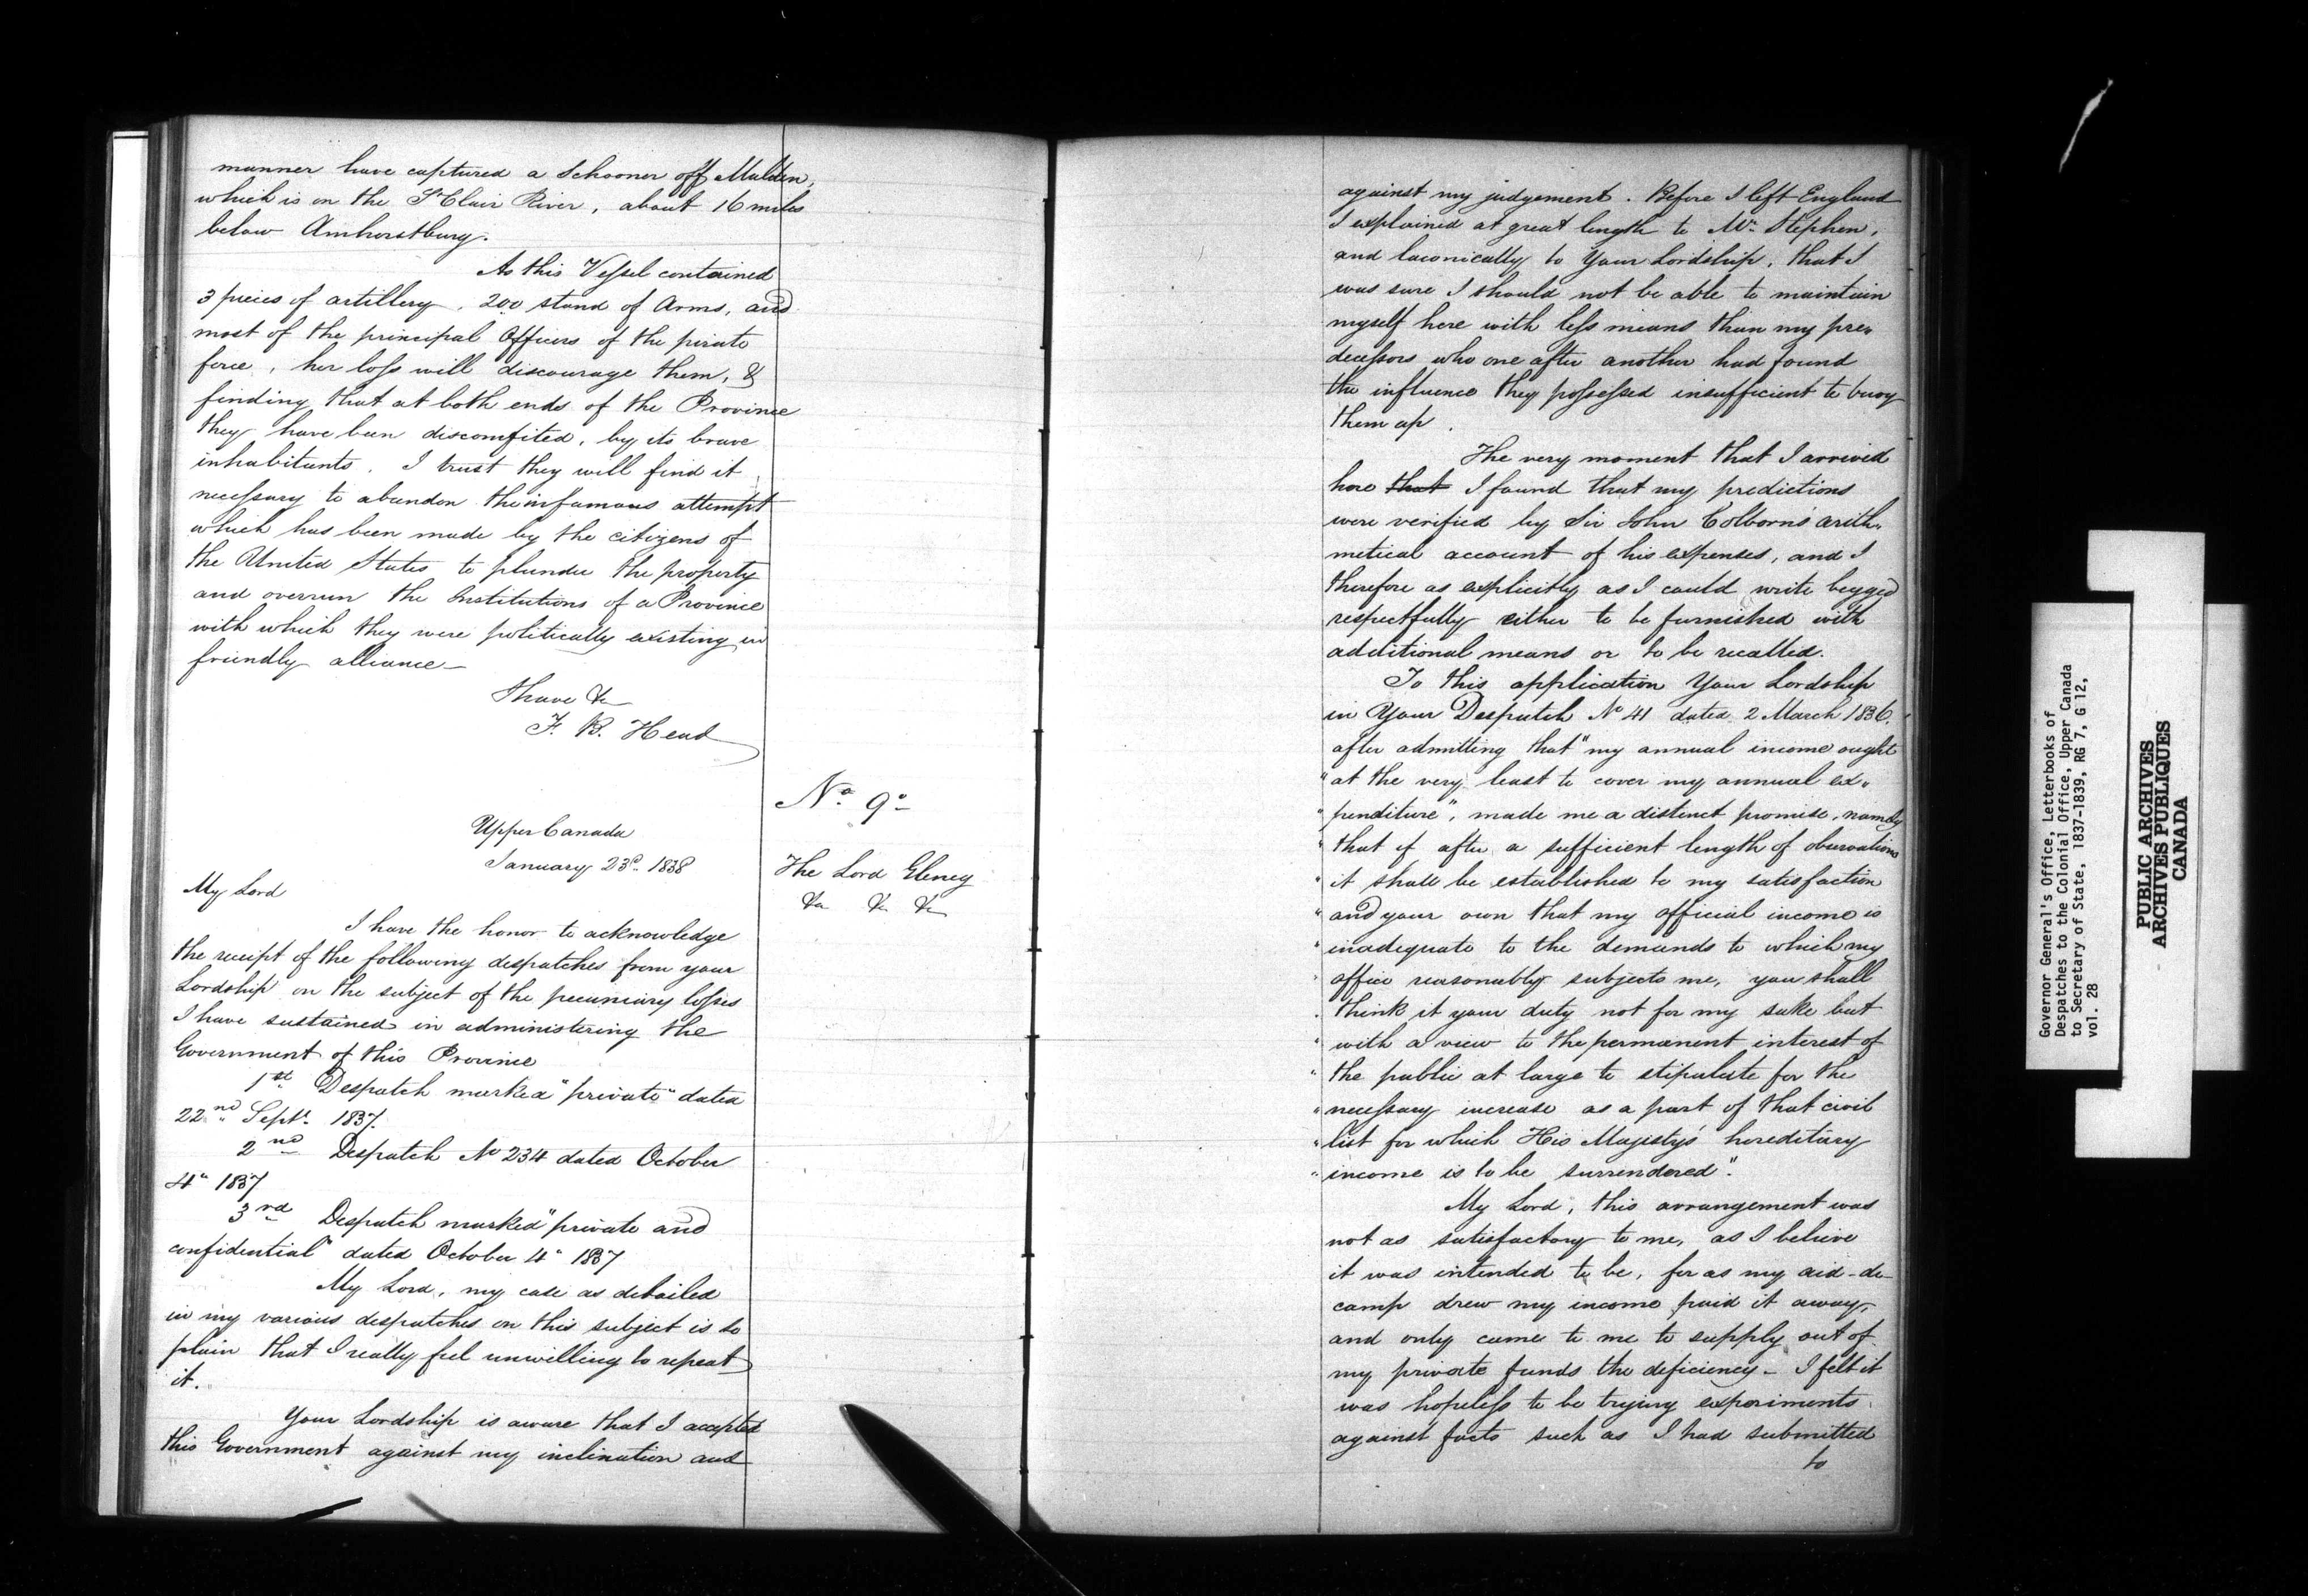 manner have captured a Schooner off Malden,
which is on the St Clair River, about 16 miles
below Amhurstburg.
As this Vessel contained
3 pieces of artillery, 200 stand of Arms, and
most of the principal Officers of the pirate
force, her loss will discourage them, &
finding that at both ends of the Province
they have been discomfited, by its brave
inhabitants, I trust they will find it
necessary to abandon the infamous attempt
which has been made by the citizens of
the United States to plunder the property
and overrun the Institutions of a Province
with which they were politically existing in
friendly alliance—
I have &c
F. B. Head
No 9
Upper Canada
January 23d. 1838
The Lord Glenelg
&c &c &c
My Lord
I have the honor to acknowledge
the receipt of the following despatches from your
Lordship on the subject of the pecuniary losses
I have sustained in administering the
Government of this Province
1st Despatch marked "private" dated
22nd Sept. 1837.
2nd Despatch No 234 dated October
4" 1837
3rd Despatch marked "private and
confidential" dated October 4" 1837
My Lord, my case as detailed
in my various despatches on this subject is so
plain that I really feel unwilling to repeat
it.
Your Lordship is aware that I accepted
this Government against my inclination and
against my judgement. Before I left England
I explained at great length to Mr. Stephen,
and laconically to Your Lordship, that I
was sure I should not be able to maintain
myself here with less means than my pre„
decessors who one after another had found
the influence they possessed insufficient to buoy
them up.
The very moment that I arrived
here that I found that my predictions
were verified by Sir John Colborn's arith„
metical account of his expenses, and I
therefore as explicitly as I could write begged
respectfully either to be furnished with
additional means or to be recalled.
To this application Your Lordship
in Your Despatch No 41 dated 2 March 1836.
after admitting that "my annual income ought
"at the very least to cover my annual ex„
"penditure", made me a distinct promise, namely
"that if after a sufficient length of observations
"it shall be established to my satisfaction
"and your own that my official income is
"inadequate to the demands to which my
"office reasonably subjects me, you shall
"think it your duty not for my sake but
"with a view to the permanent interest of
"the public at large to stipulate for the
"necessary increase as a part of that civil
"list for which His Majesty's hereditary
"income is to be surrendered".
My Lord, this arrangement was
not as satisfactory to me, as I believe
it was intended to be, for as my aid-de-
camp drew my income paid it away,
and only came to me to supply out of
my private funds the deficiency – I felt it
was hopeless to be trying experiments
against facts such as I had submitted
to
Governor General's Office, Letterbooks of
Despatches to the Colonial Office, Upper Canada
to Secretary of State, 1837-1839, RG 7, G 12,
vol. 28
PUBLIC ARCHIVES
ARCHIVES PUBLIQUES
CANADA